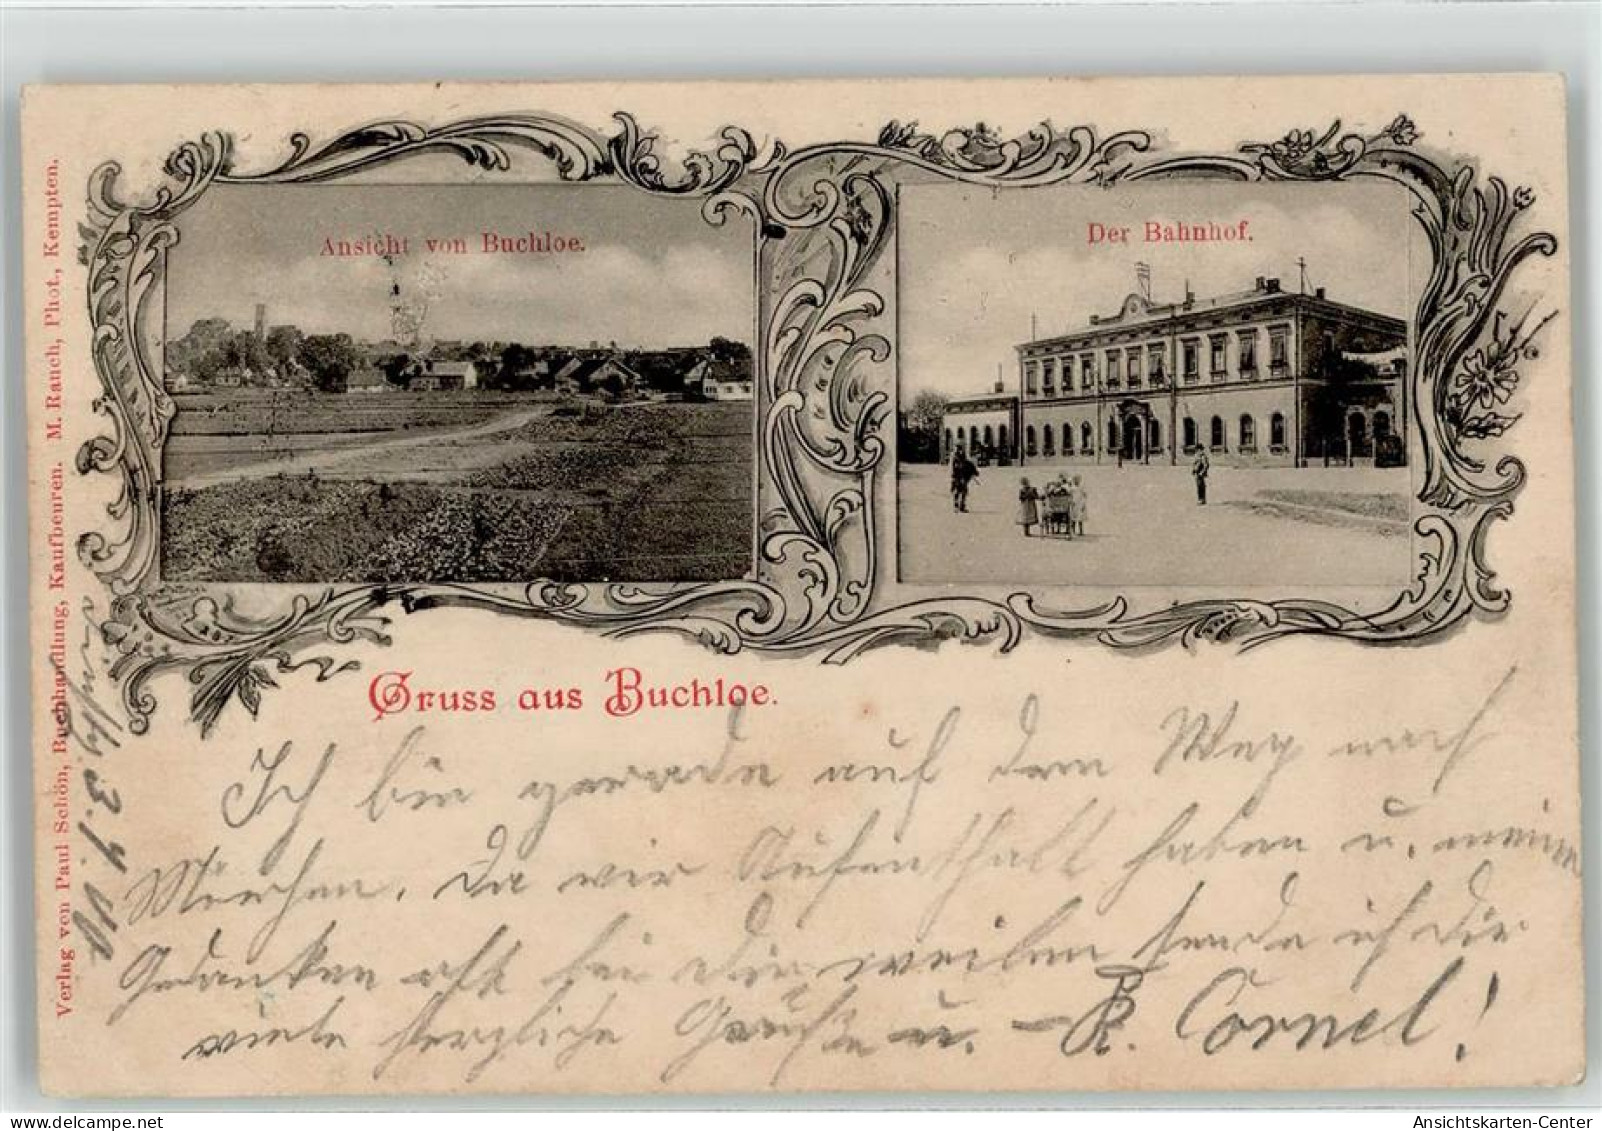 Ansicht von Buchloe.
Der Bahnhof.
Verlag von Paul Schön, Buchhandlung, Kaufbeuren. M. Rauch, Phot., Kempten.
Gruss aus Buchloe.
Ich bin gerade auf dem Weg nach
München. Da wir Aufenthalt haben u. meine
Gedanken oft bei dir weilen sende ich dir
viele herzliche Grüße u. – K. Cornel!
AnsichtsKarten-Center